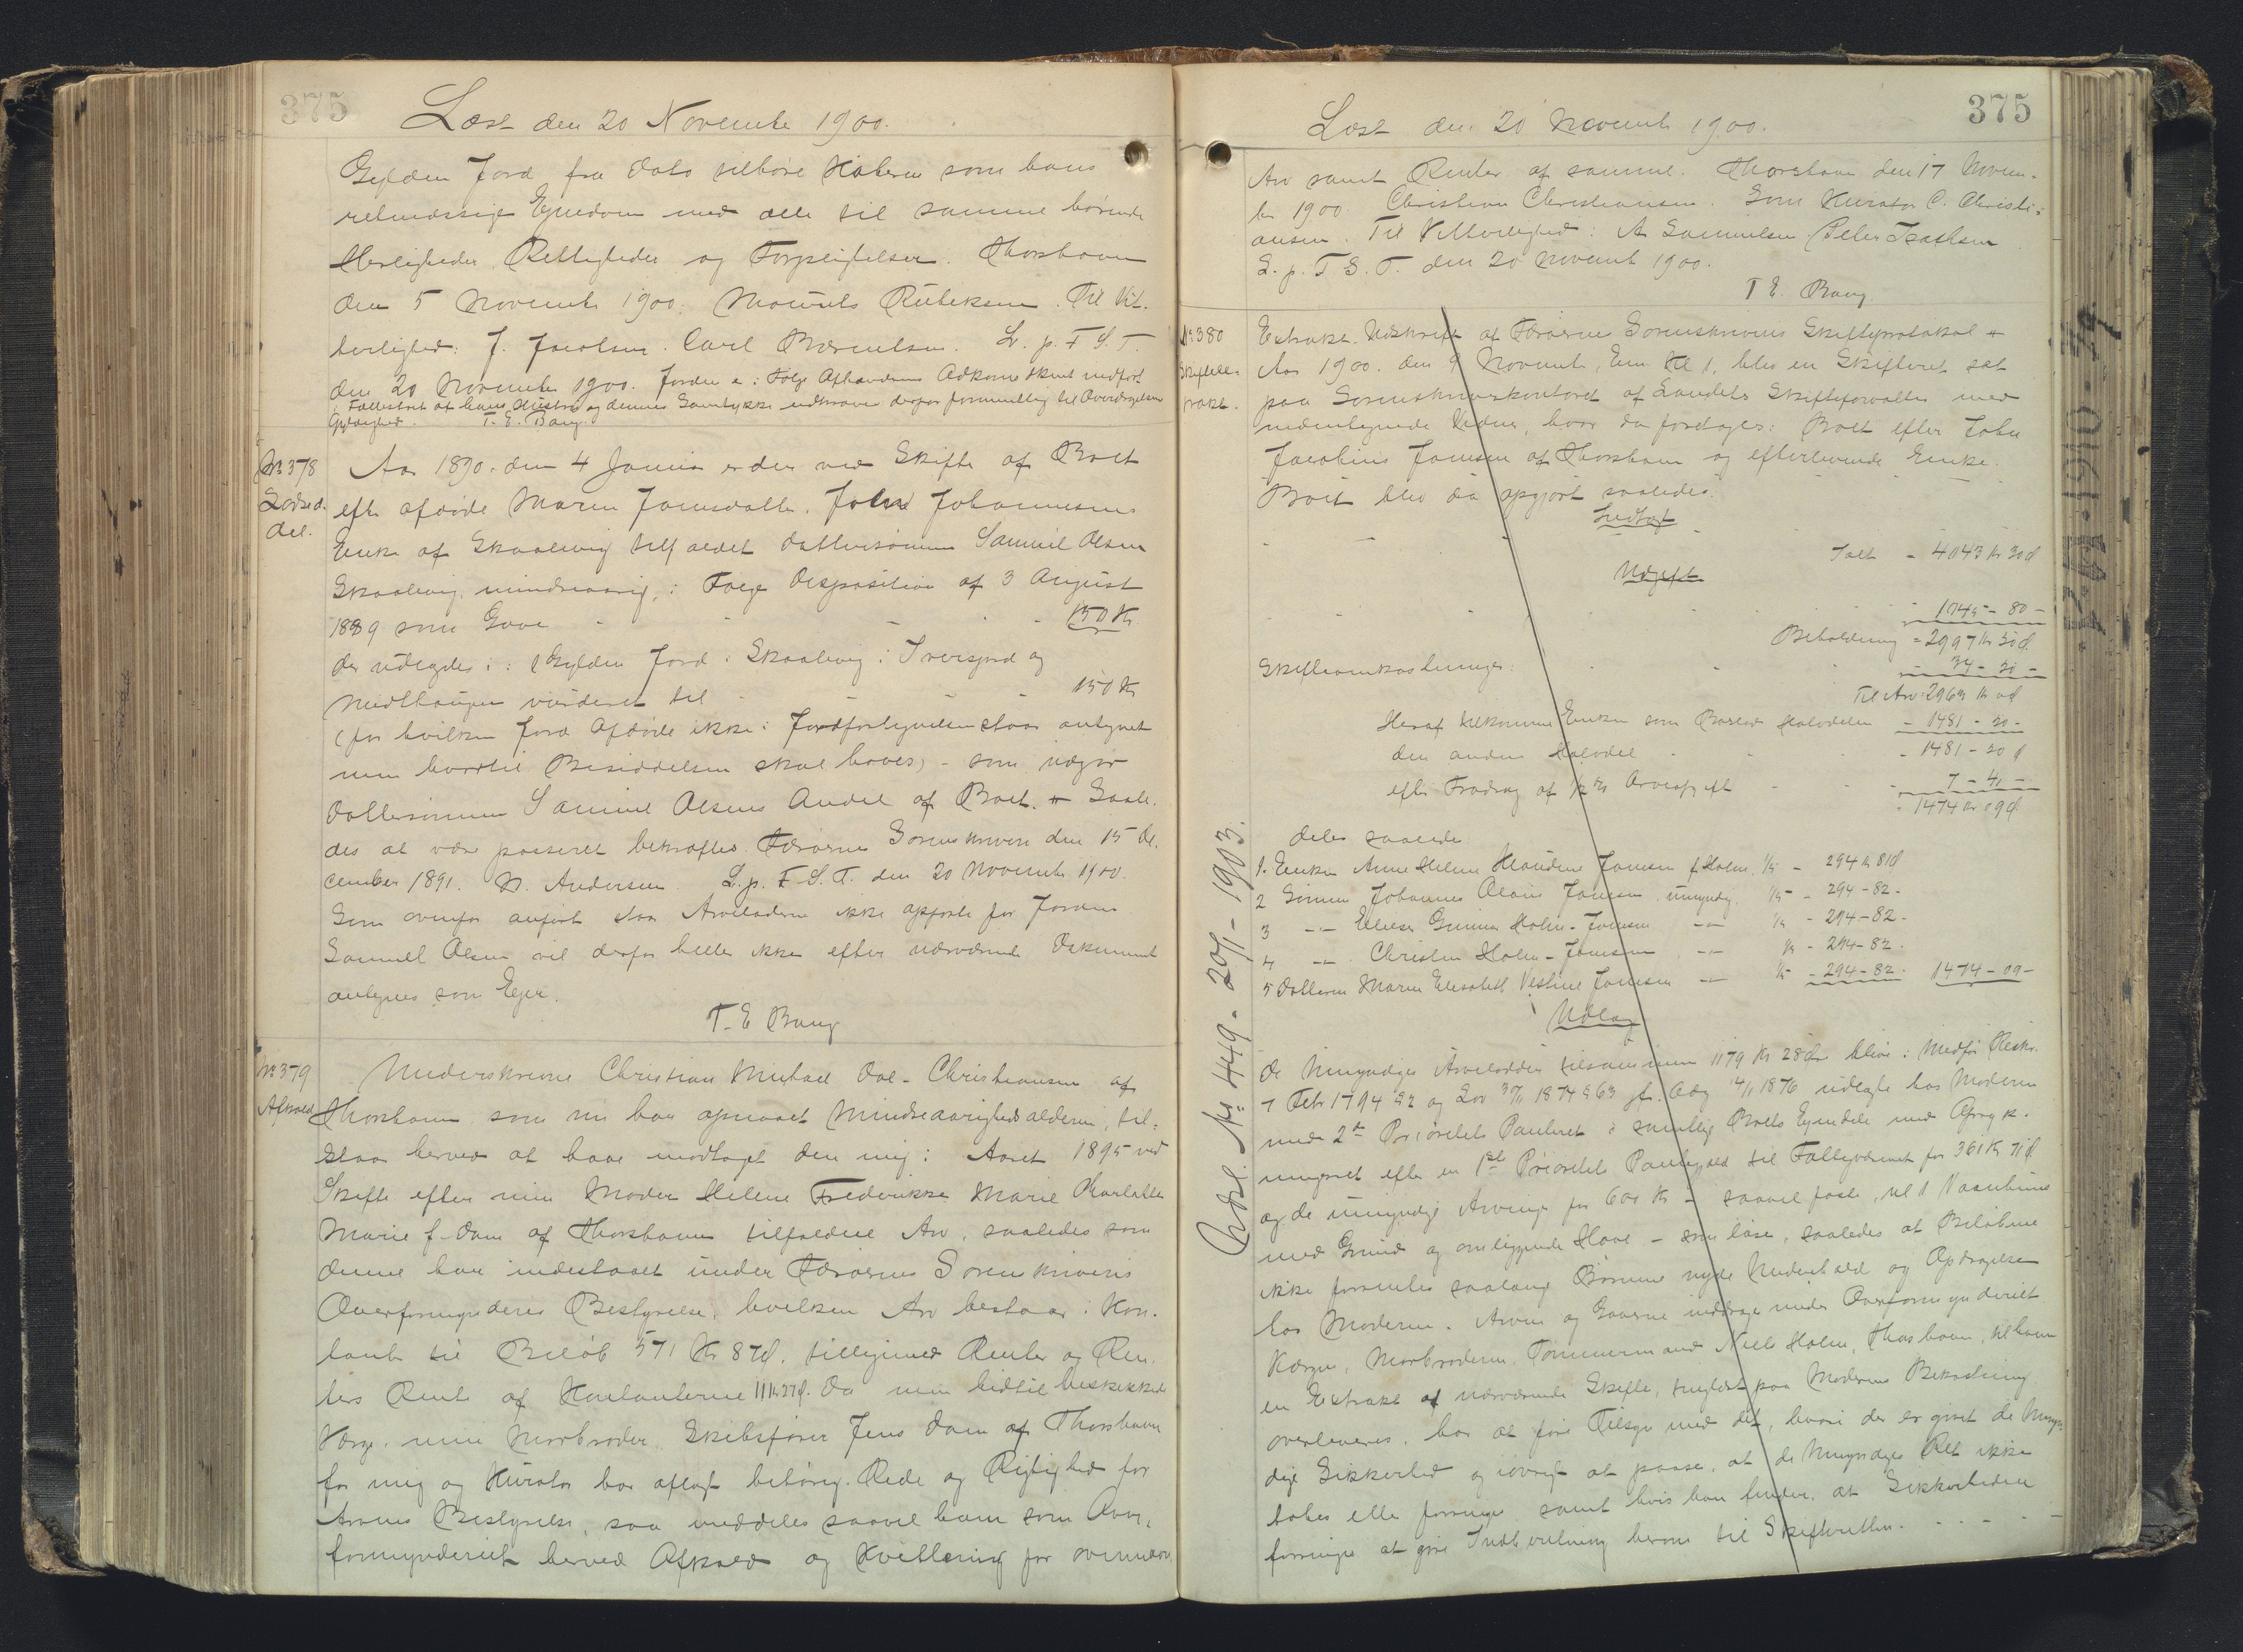 375
Læst den 20 November 1900.
Gylden Jord fra Dato tilhøre Køberen som hans
retmæssige Ejendom med alle til samme hørende
Herligheder, Rettigheder og Forpligtelser. Thorshavn
den 5 November 1900. Mouruts Rubeksen. Til Vit-
terlighed: J. Jacobsen. Carl Berentsen. L. p. F. S. T.
den 20 November 1900. Jorden er i Følge Afhænderens Adkomst skjønt indført
i Fællesbrit af hans Hustru og dennes Samtykke udkræves derfor formentlig til Overdragelsens
Gyldighed. T. E. Bang.
No 378
Lodsed-
del.
Aar 1890. den 4 Januar er der ved Skifte af Boet
efter afdøde Maren Joensdatter, John Johannesens
Enke af Skaalevig tilfaldet Dattersønnen Samuel Olsen
Skaalevig, mindreaarig, i Følge Disposition af 3 August
1889 som Gave - - - 150 Kr.
der udlægdes i: 1 Gylden Jord i Skaalevig i Tversgjord og
Nidthaugen vurderet til - - - 150 Kr
(for hvilken Jord Afdøde ikke i Jordfortegnelsen staar antegnet
men hvortil Besiddelsen skal haves) - som udgør
Dattersønnen Samuel Olsens Andel af Boet. Saale-
des at være passeret bekræftes. Færøernes Sorenskriveri den 15 De-
cember 1891. N. Andersen. L. p. F. S. T. den 20 November 1900.
Som ovenfor anført staar Arveladeren ikke opført for Jorden
Samuel Olsen vil derfor heller ikke efter nærværende Dokument
antegnes som Ejer.
T. E. Bang
No 379
Afkald
Underskrevne Christian Michael Dal-Christiansen af
Thorshavn som nu har opnaaet Mindreaarighedsalderen, til-
staar herved at have modtaget den mig i Aaret 1895 ved
Skifte efter min Moder Helene Frederikke Marie Charlotte
Marie f. Dam af Thorshavn tilfaldne Arv, saaledes som
denne har indestaaet under Færøernes Sorenskriveris
Overformynderies Bestyrelse, hvilken Arv bestaar i Kon-
tant til Beløb 571 Kr 87 Ø. tilligemed Renter og Ren-
ters Rente af Kontanterne 111 Kr 27 Ø. Da min hidtil beskikkede
Værge, min Morbroder, Skibsfører Jens Dam af Thorshavn
for mig og Kurator har aflagt behørig Rede og Rigtighed for
Arvens Bestyrelse, saa meddeles saavel ham som Over-
formynderiet herved Afkald og Kvittering for ovennævn
375
Læst den 20 November 1900.
Arv samt Renter af samme. Thorshavn den 17 Novem-
ber 1900. Christian Christiansen. Som Kurator C. Christi-
ansen. Til Vitterlighed: A Samuelsen Peter Isaksen
L. p. F. S. T. den 20 November 1900.
T. E. Bang
No 380
Skifteex-
trakt.
Extrakt-Udskrift af Færøernes Sorenskriveris Skifteprotokol
Aar 1900. den 9 November, Em. Kl 1, blev en Skifteret sat
paa Sorenskriverkontoret af Landets Skifteforvalter med
medundertegnede Vidner, hvor da foretages: Boet efter John
Jacobius Joensen af Thorshavn og efterlevende Enke.
Boet blev da opgjort saaledes:
Indtægt
Ialt - 4043 Kr 30 Ø
Udgift
- 1045 - 80 -
Beholdning = 2997 Kr 50 Ø.
Skifteomkostninger: - 34 - 50 -
Til Arv: 2963 Kr 0 Ø
Heraf tilkommer Enken som Boslod Halvdelen - 1481 - 50 -
den anden Halvdel - 1481 - 50 Ø
efter Fradrag af ½ % Arveafgift - 7 - 41 -
- 1474 Kr 09 Ø.
deles saaledes
1. Enken Anne Helene Claudine Joensen f. Holm, 1/5 - 294 Kr 81 Ø
2 Sønnen Johannes Joensen, umyndig, 1/5 - 294 - 82 -
3 -"- Gunnar Holm-Joensen -"- 1/5 - 294 - 82 -
4 -"- Christen Holm-Joensen -"- 1/5 - 294 - 82 -
5 Datteren Maren Elisabeth Joensen -"- 1/5 - 294 - 82 - 1474 - 09 -
Udlæg
De Umyndiges Arvelodder tilsammen 1179 Kr 28 Øre blive i Medfør Reskr.
7 Febr 1794 §2 og Lov 30/11 1874 §63 jfr. Adg 14/1 1876 udlagte hos Moderen
mod 2den Prioritets Panteret i samtlige Boets Ejendele med Oprykn-
ingsret efter en 1ste Prioritets Pantegæld til Fattigvæsenet for 361 Kr 71 Ø
og de umyndige Arvinge for 600 Kr - saavel faste, Vaaningshuus
med Grund og omliggende Have - som løse, saaledes at Beløbene
ikke forrentes saalænge Børnene nyde Underhold og Opdragelse
hos Moderen. Arven og Gaverne inddrages under Overformynderiet
Værgen, Morbroderen, Tømmermand Niels Holm, Thorshavn, til hvem
en Extrakt af nærværende Skifte, tinglæst paa Moderens Bekostning
overleveres, har at føre Tilsyn med det, hvori der er givet de Umyn-
dige Sikkerhed og iøvrigt at paase, at de Umyndiges Ret ikke
tabes eller forringes samt hvis han finder, at Sikkerheden
forringes at give Indberetning herom til Skifteretten. - - - -
Aflyst No. 449 - 20/1 - 1903.